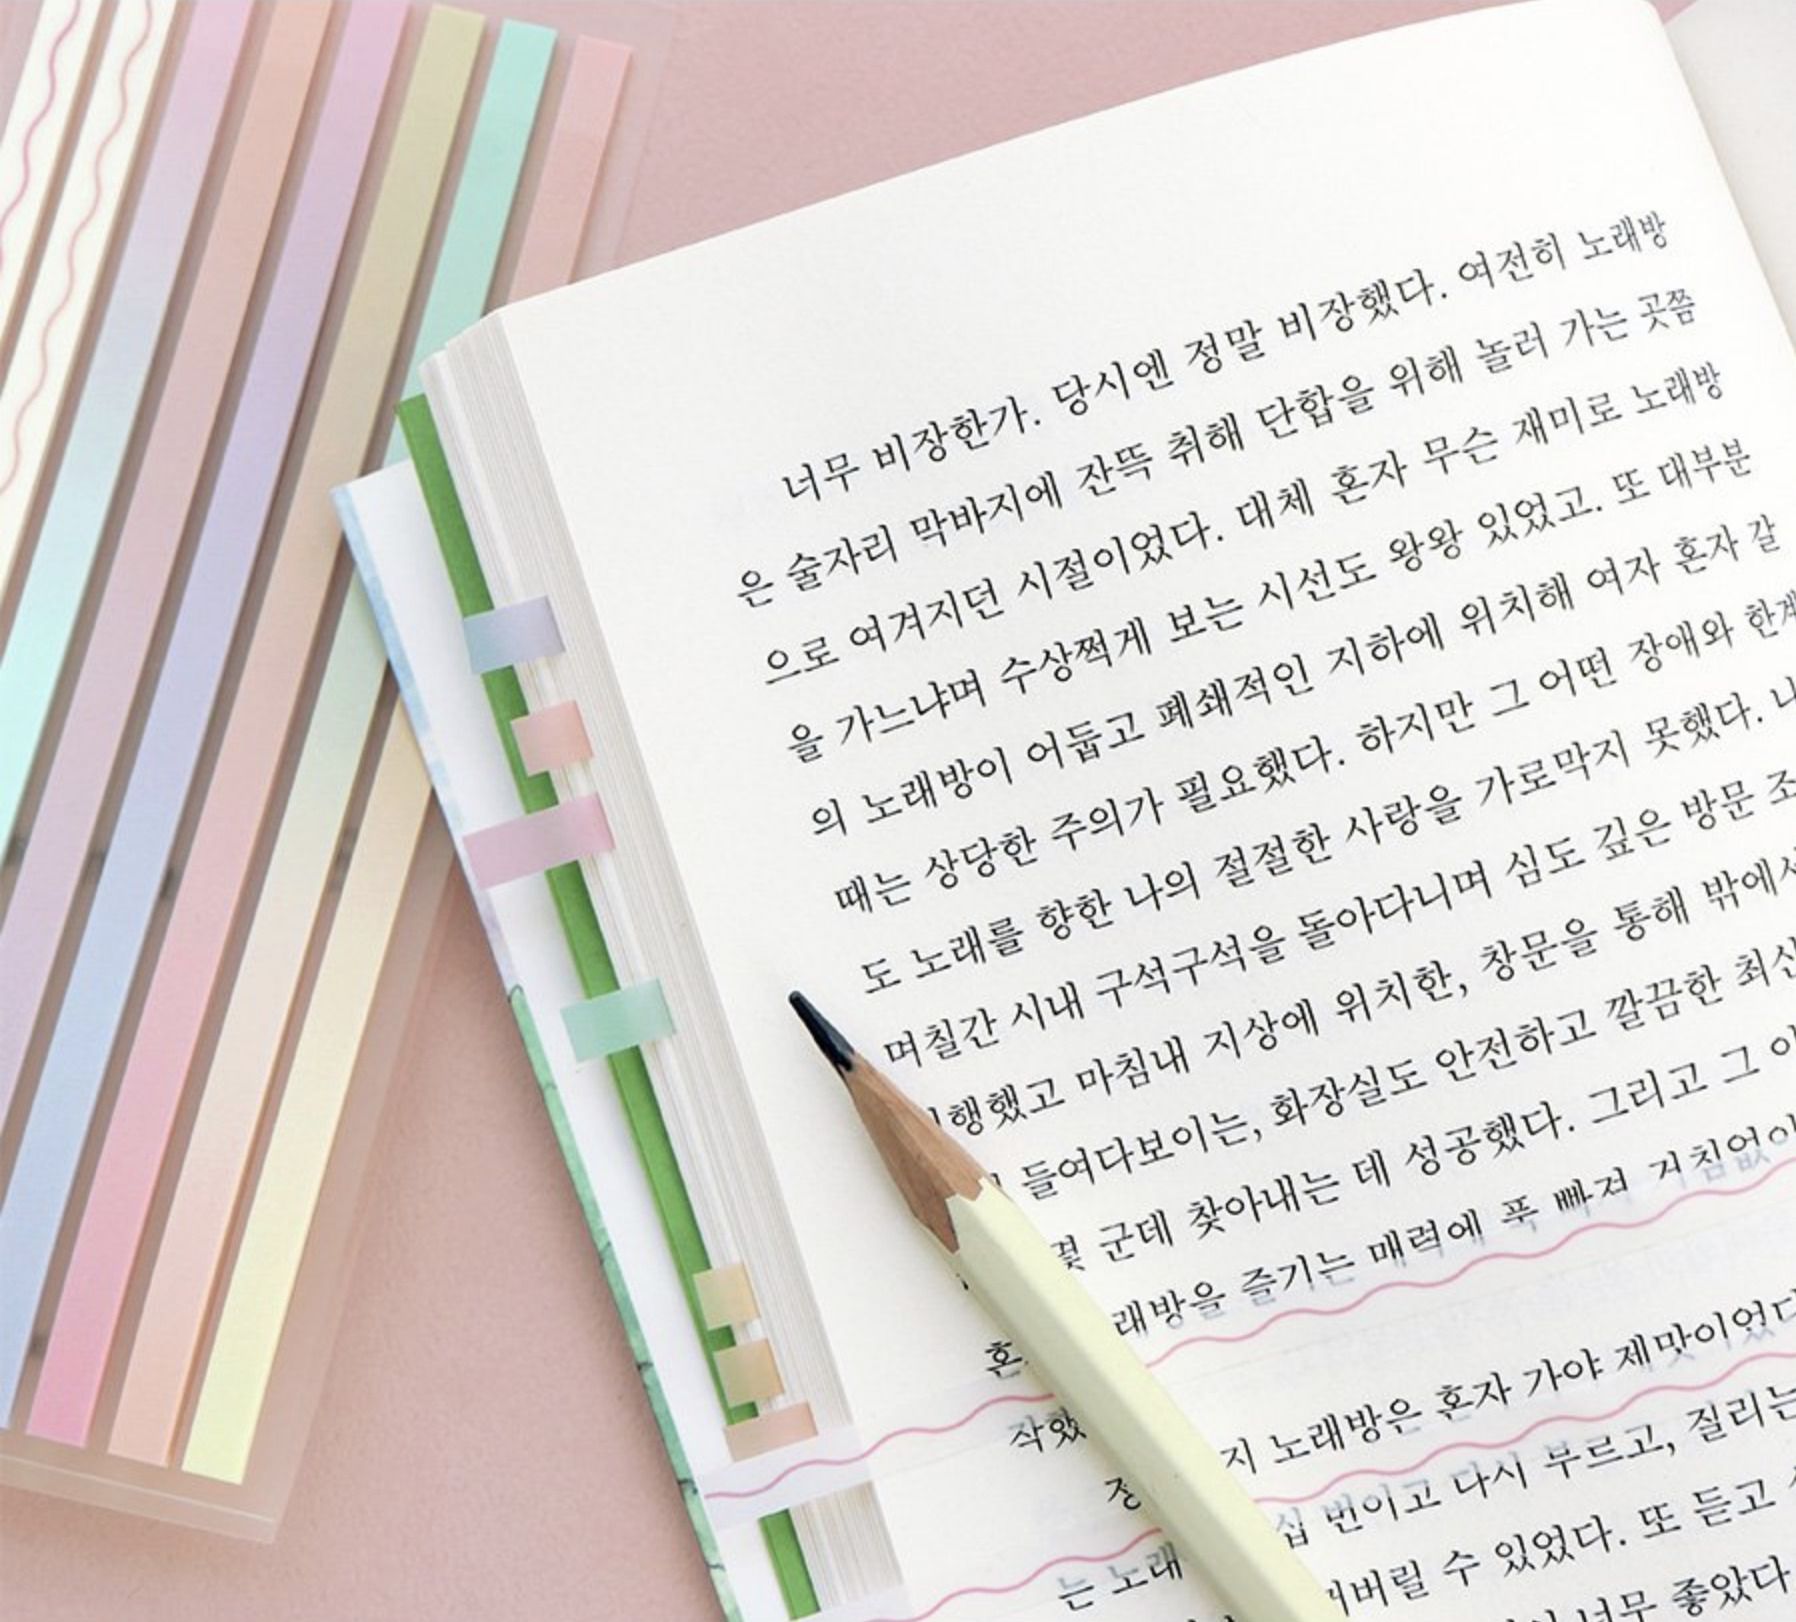 너무 비장한가. 당시엔 정말 비장했다. 여전히 노래방
은 술자리 막바지에 잔뜩 취해 단합을 위해 놀러 가는 곳쯤
으로 여겨지던 시절이었다. 대체 혼자 무슨 재미로 노래방
을 가느냐며 수상쩍게 보는 시선도 왕왕 있었고. 또 대부분
의 노래방이 어둡고 폐쇄적인 지하에 위치해 여자 혼자 갈
때는 상당한 주의가 필요했다. 하지만 그 어떤 장애와 한계
도 노래를 향한 나의 절절한 사랑을 가로막지 못했다.
며칠간 시내 구석구석을 돌아다니며 심도 깊은 방문
행했고 마침내 지상에 위치한, 창문을 통해 밖에서
들여다보이는, 화장실도 안전하고 깔끔한
군데 찾아내는 데 성공했다. 그리고 그
래방을 즐기는 매력에 푹 빠져
지 노래방은 혼자 가야 제맛이었다
십 번이고 다시 부르고, 질리는
버릴 수 있었다. 또 듣고
는 노래
너무 좋았다